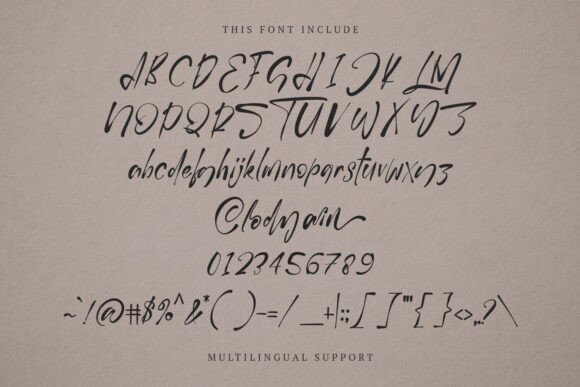 THIS FONT INCLUDE
ABCDEFGHIJKLM
NOPQRSTUVWXYZ
abcdefghijklmnopqrstuvwxyz
Clodyain
0123456789
~`!@#$%^&*()-=/_+|:;[]"'{}<>,.?\
MULTILINGUAL SUPPORT